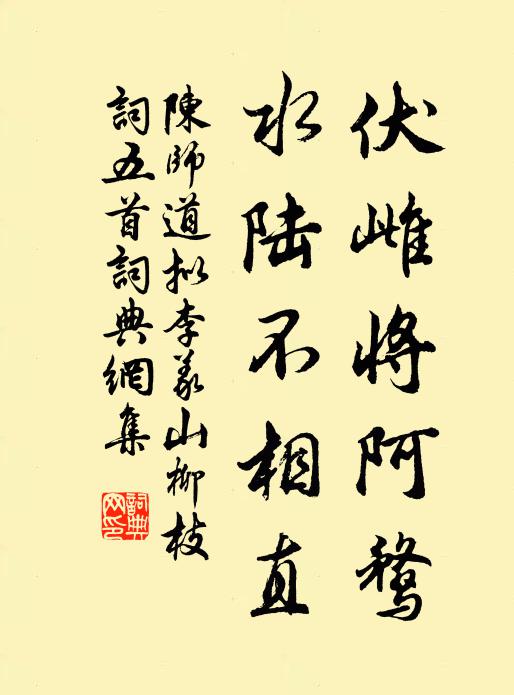 伏雌将阿鹜
水陆不相直
陳師道拟李義山柳枝
詞五首詞典網集
詞典
网印